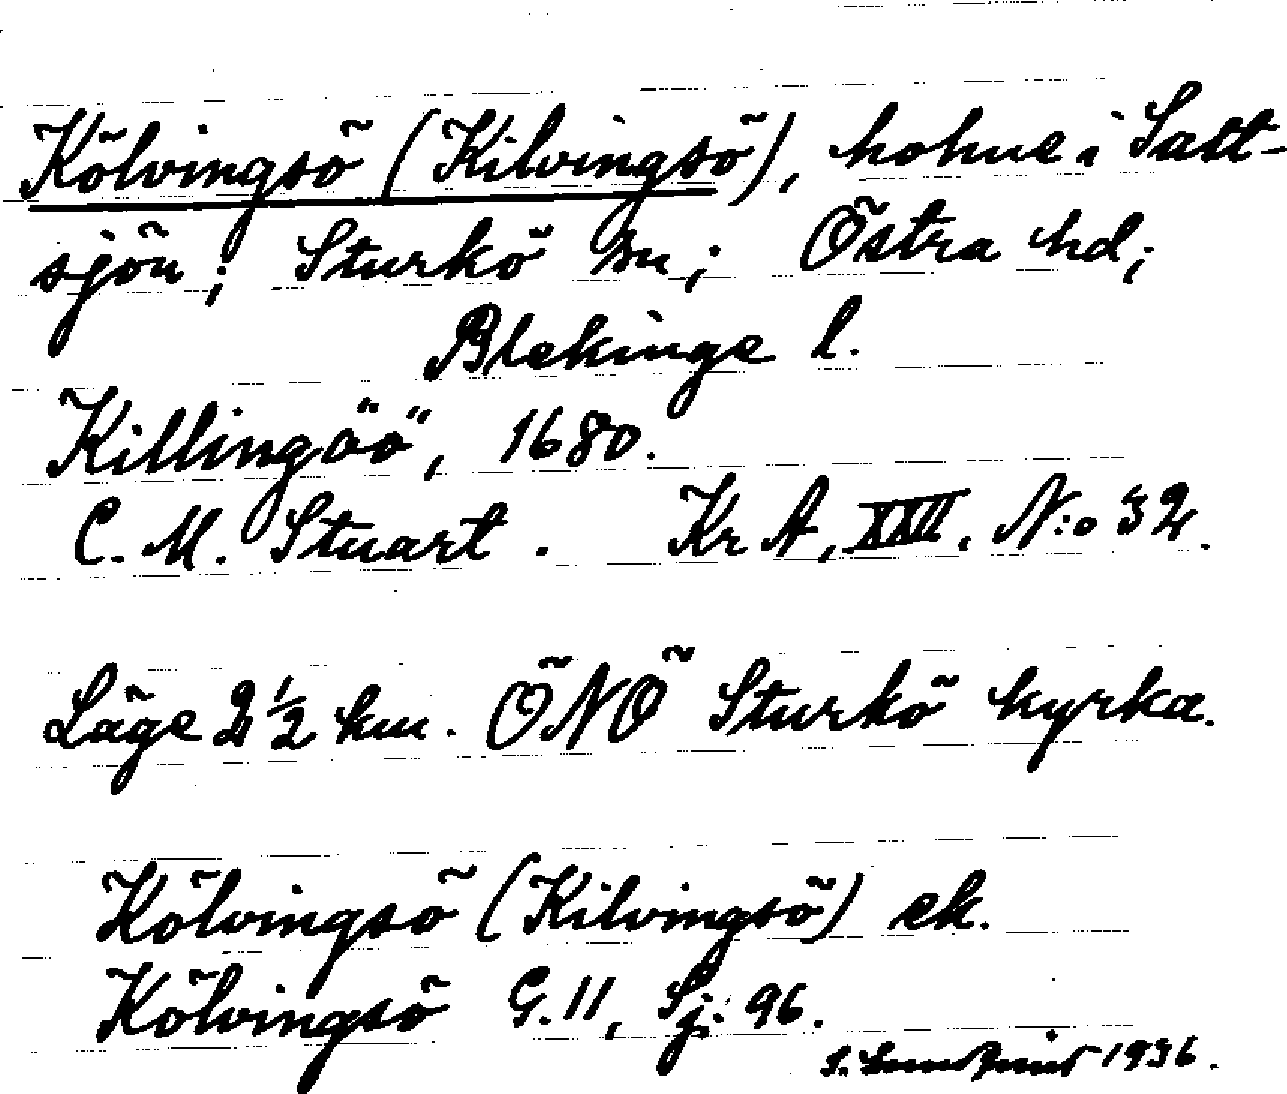 Kölvingsö (Kilvingsö), holme i Salt-
sjön; Sturkö sn; Östra hd;
Blekinge l.
Killingöö, 1680.
C. M. Stuart. Kr A, XXII. N:o 32.
Läge 2 1/2 km. ÖNÖ Sturkö kyrka.
Kölvingsö (Kilvingsö) ek.
Kölvingsö G. 11, Sj: 96.
S. 1936.